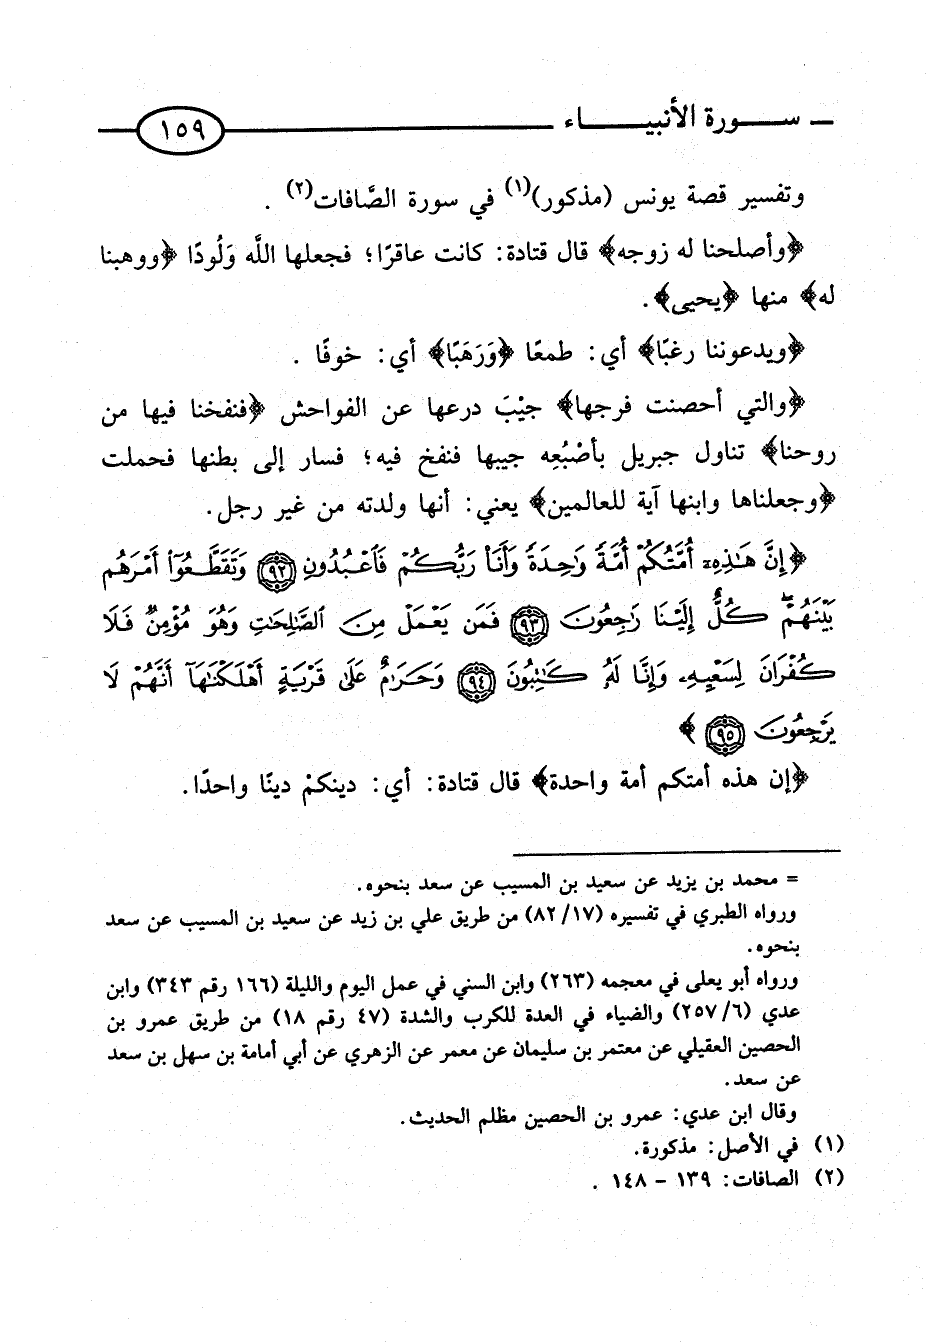 سورة الأنبياء
١٥٩
وتفسير قصة يونس (مذكور)(١) في سورة الصَّافات(٢) .
﴿وأصلحنا له زوجه﴾ قال قتادة: كانت عاقرًا؛ فجعلها اللَّه وَلُودًا ﴿ووهبنا
له﴾ منها ﴿يحيى﴾.
﴿ويدعوننا رغبًا﴾ أي: طمعًا ﴿وَرَهَبًا﴾ أي: خوفًا .
﴿والتي أحصنت فرجها﴾ جيْبَ درعها عن الفواحش ﴿فنفخنا فيها من
روحنا﴾ تناول جبريل بأصْبُعِه جيبها فنفخ فيه؛ فسار إلى بطنها فحملت
﴿وجعلناها وابنها آية للعالمين﴾ يعني: أنها ولدته من غير رجل.
﴿إِنَّ هَـٰذِهِۦٓ أُمَّتُكُمْ أُمَّةً وَٰحِدَةً وَأَنَا۠ رَبُّكُمْ فَٱعْبُدُونِ ﴿٩٢﴾ وَتَقَطَّعُوٓا۟ أَمْرَهُم
بَيْنَهُمْ ۖ كُلٌّ إِلَيْنَا رَٰجِعُونَ ﴿٩٣﴾ فَمَن يَعْمَلْ مِنَ ٱلصَّـٰلِحَـٰتِ وَهُوَ مُؤْمِنٌ فَلَا
كُفْرَانَ لِسَعْيِهِۦ وَإِنَّا لَهُۥ كَـٰتِبُونَ ﴿٩٤﴾ وَحَرَٰمٌ عَلَىٰ قَرْيَةٍ أَهْلَكْنَـٰهَآ أَنَّهُمْ لَا
يَرْجِعُونَ ﴿٩٥﴾ ﴾
﴿إن هذه أمتكم أمة واحدة﴾ قال قتادة: أي: دينكمْ دينًا واحدًا.
= محمد بن يزيد عن سعيد بن المسيب عن سعد بنحوه.
ورواه الطبري في تفسيره (١٧/ ٨٢) من طريق علي بن زيد عن سعيد بن المسيب عن سعد
بنحوه.
ورواه أبو يعلى في معجمه (٢٦٣) وابن السني في عمل اليوم والليلة (١٦٦ رقم ٣٤٣) وابن
عدي (٦/ ٢٥٧) والضياء في العدة للكرب والشدة (٤٧ رقم ١٨) من طريق عمرو بن
الحصين العقيلي عن معتمر بن سليمان عن معمر عن الزهري عن أبي أمامة بن سهل بن سعد
عن سعد.
وقال ابن عدي: عمرو بن الحصين مظلم الحديث.
(١) في الأصل: مذكورة.
(٢) الصافات: ١٣٩ - ١٤٨ .